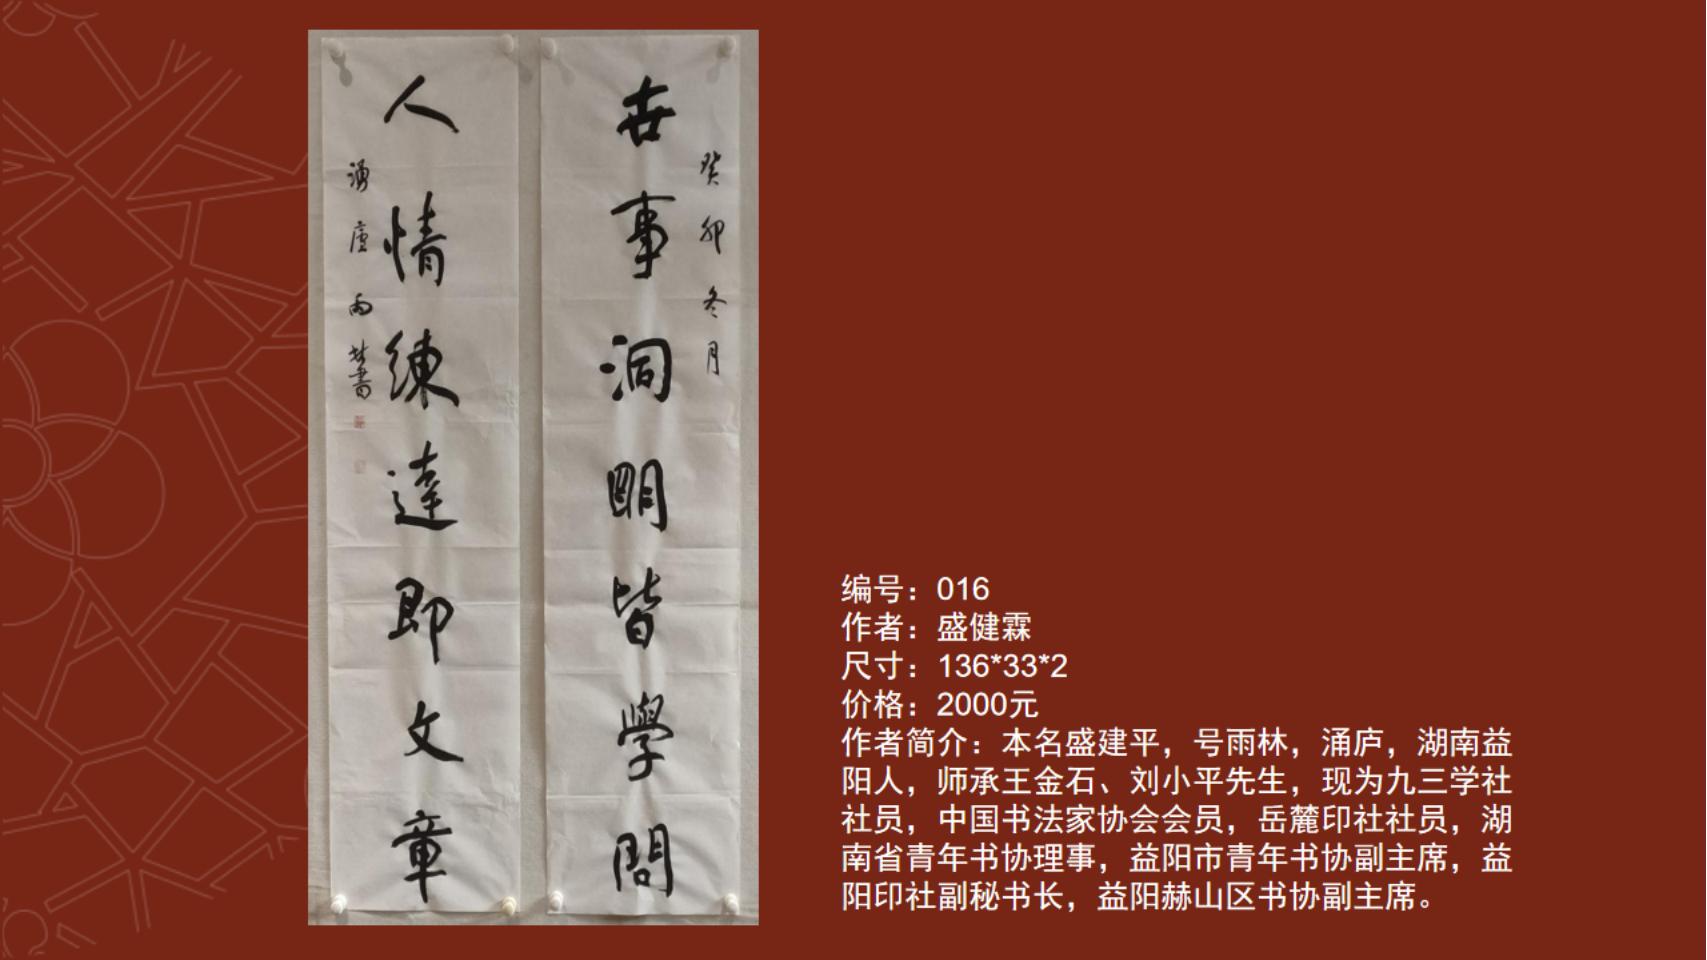 癸卯冬月
世事洞明皆學問
人情練達即文章
湧廬雨林書
编号：016
作者：盛健霖
尺寸：136*33*2
价格：2000元
作者简介：本名盛建平，号雨林，涌庐，湖南益
阳人，师承王金石、刘小平先生，现为九三学社
社员，中国书法家协会会员，岳麓印社社员，湖
南省青年书协理事，益阳市青年书协副主席，益
阳印社副秘书长，益阳赫山区书协副主席。